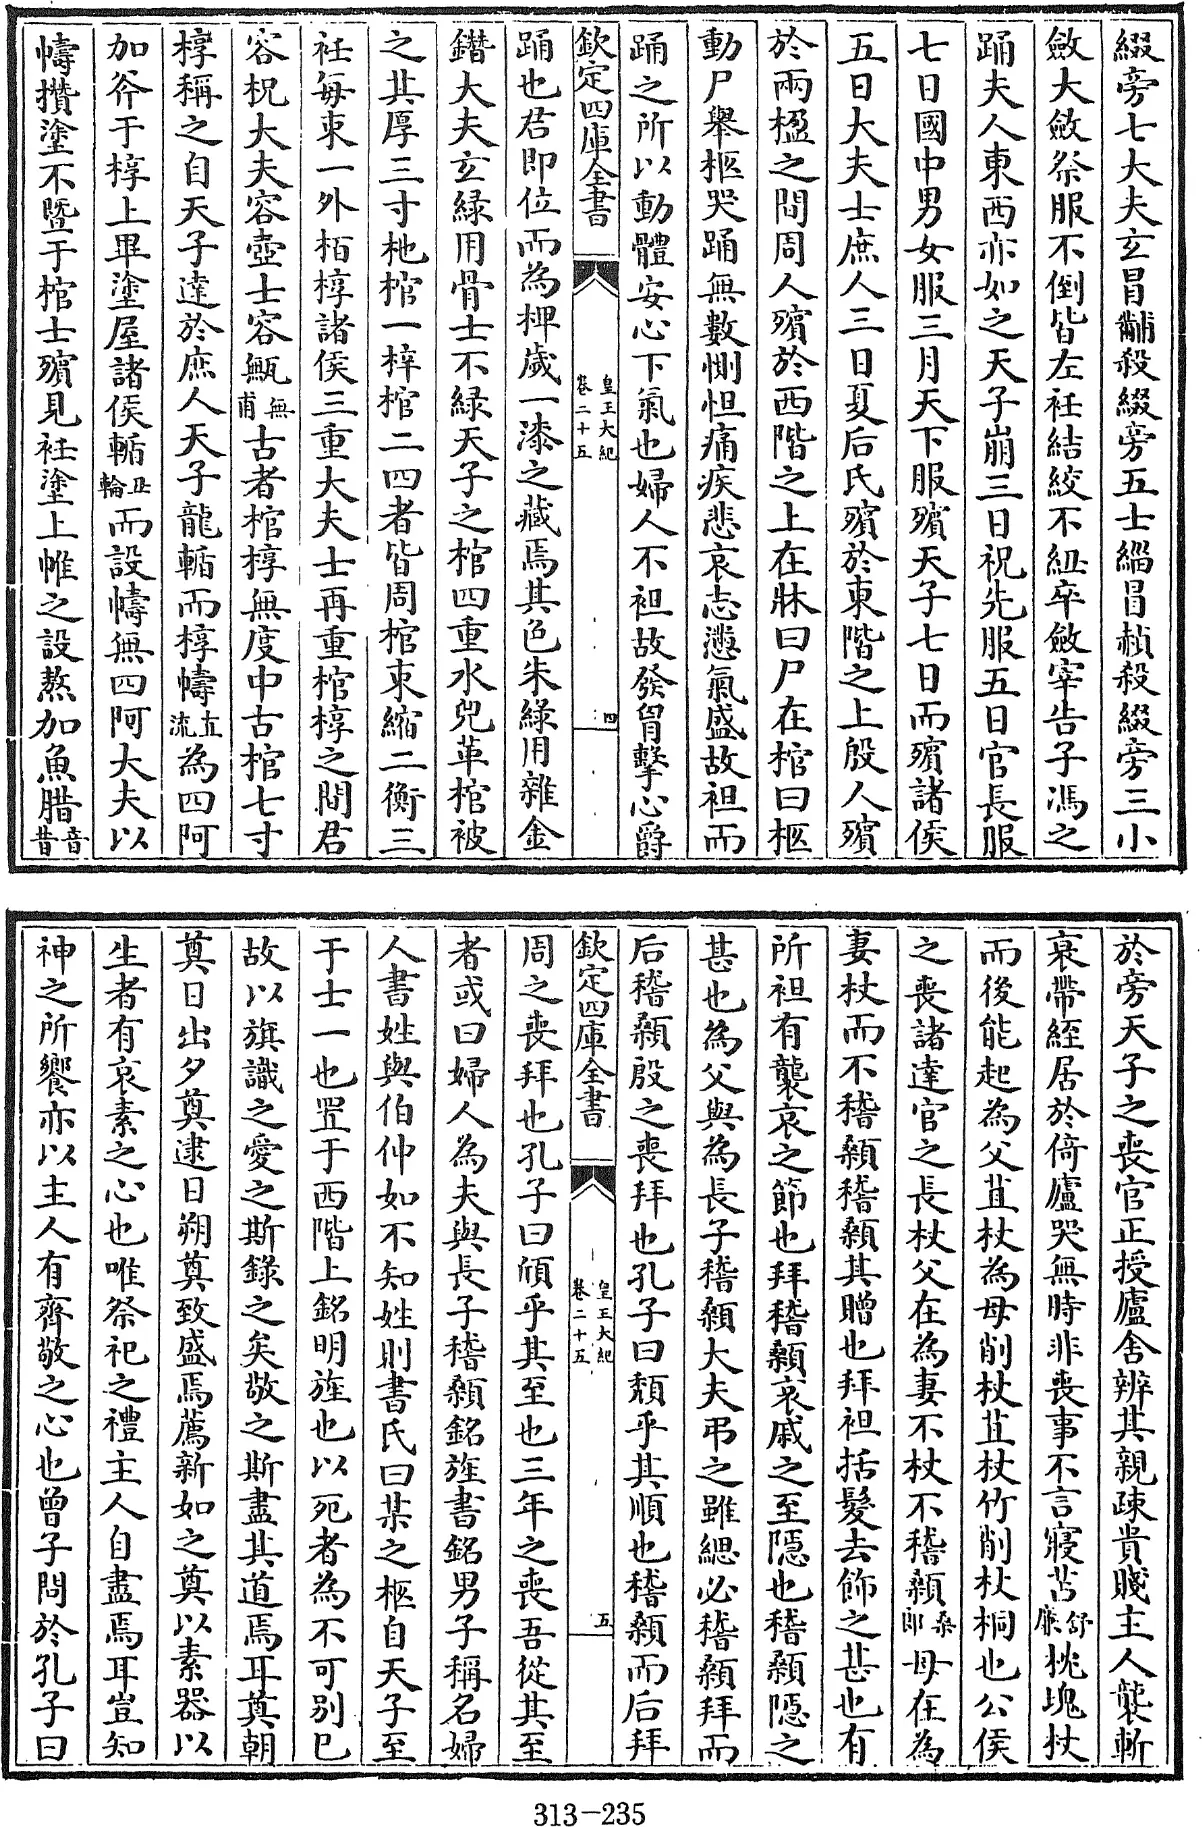 綴旁七大夫玄冒黼殺綴旁五士緇冒赬殺綴旁三小
斂大斂祭服不倒皆左衽結絞不紐卒斂宰告子馮之
踊夫人東西亦如之天子崩三日祝先服五日官長服
七日國中男女服三月天下服殯天子七日而殯諸侯
五日大夫士庶人三日夏后氏殯於東階之上殷人殯
於兩楹之間周人殯於西階之上在牀曰尸在棺曰柩
動尸舉柩哭踊無數惻怛痛疾悲哀志懣氣盛故袒而
踊之所以動體安心下氣也婦人不袒故發胷擊心爵
欽定四庫全書 皇王大紀 卷二十五 四
踊也君即位而為椑歲一漆之藏焉其色朱緑用雜金
鐕大夫玄緑用骨士不緑天子之棺四重水兕革棺被
之其厚三寸杝棺一梓棺二四者皆周棺束縮二衡三
衽每束一外栢椁諸侯三重大夫士再重棺椁之間君
容柷大夫容壺士容甒無甫古者棺椁無度中古棺七寸
椁稱之自天子達於庶人天子龍輴而椁幬直流為四阿
加斧于椁上畢塗屋諸侯輴丑輪而設幬無四阿大夫以
幬攢塗不暨于棺士殯見衽塗上帷之設熬加魚腊音昔
於旁天子之喪官正授廬舍辨其親疎貴賤主人襲斬
衰帶絰居於倚廬哭無時非喪事不言寢苫舒廉枕塊杖
而後能起為父苴杖為母削杖苴杖竹削杖桐也公侯
之喪諸達官之長杖父在為妻不杖不稽顙桑郎母在為
妻杖而不稽顙稽顙其贈也拜袒括髮去飾之甚也有
所袒有襲哀之節也拜稽顙哀戚之至隱也稽顙隱之
甚也為父與為長子稽顙大夫弔之雖緦必稽顙拜而
后稽顙殷之喪拜也孔子曰頽乎其順也稽顙而后拜
欽定四庫全書 皇王大紀 卷二十五 五
周之喪拜也孔子曰頎乎其至也三年之喪吾從其至
者或曰婦人為夫與長子稽顙銘旌書銘男子稱名婦
人書姓與伯仲如不知姓則書氏曰某之柩自天子至
于士一也置于西階上銘明旌也以死者為不可别已
故以旗識之愛之斯錄之矣敬之斯盡其道焉耳奠朝
奠日出夕奠逮日朔奠致盛焉薦新如之奠以素器以
生者有哀素之心也唯祭祀之禮主人自盡焉耳豈知
神之所饗亦以主人有齊敬之心也曾子問於孔子曰
313-235